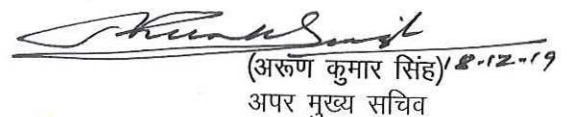 (अरूण कुमार सिंह) 18-12-19
अपर मुख्य सचिव